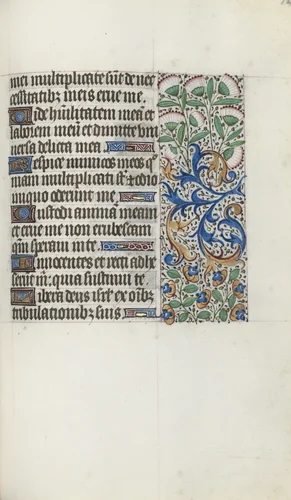 mei multiplicate sūt de nec
cessitatibȝ meis erue me.
Uide hūilitatem meā et
laborem meū et dimitte vni
uersa delicta mea.
Respice inimicos meos qm
multiplicati sūt et odio
iniquo oderunt me
Custodi animā meam
et erue me non erubescam
qm̄ speraui in te.
Innocentes et recti adhe
serūt m̄: quia sustinui te
Libera deus isrl̄ ex oībȝ
tribulationibȝ suis